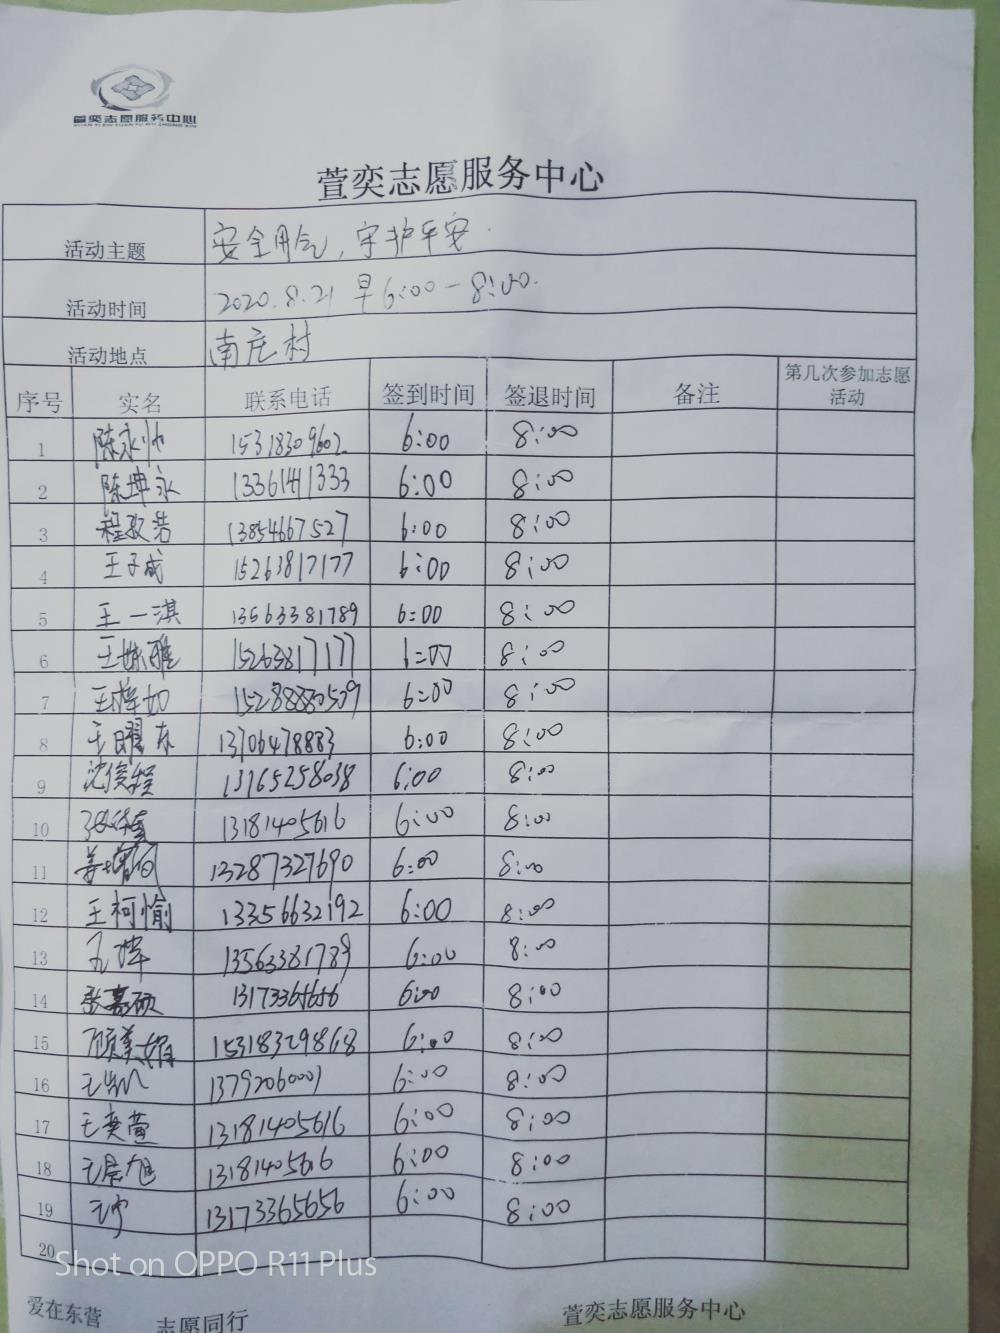 萱奕志愿服务中心
萱奕志愿服务中心
活动主题 安全用气,守护平安.
活动时间 2020.8.21 早6:00-8:00.
活动地点 南庄村
序号 实名 联系电话 签到时间 签退时间 备注 第几次参加志愿活动
1 陈永帅 15318309602 6:00 8:00
2 陈坤永 13361441333 6:00 8:00
3 程政浩 13854667527 6:00 8:00
4 王子成 15263817177 6:00 8:00
5 王一淇 13563381789 6:00 8:00
6 王姝雅 15263817177 6:00 8:00
7 15288880509 6:00 8:00
8 王曜东 13706478883 6:00 8:00
9 沈俊程 13765258038 6:00 8:00
10 13181405616 6:00 8:00
11 13287327690 6:00 8:00
12 王柯愉 13356632192 6:00 8:00
13 13563381789 6:00 8:00
14 张嘉硕 13173365656 6:00 8:00
15 顾美娟 15318329868 6:00 8:00
16 13792060001 6:00 8:00
17 王奕萱 13181405616 6:00 8:00
18 王晨旭 13181405616 6:00 8:00
19 王宁 13173365656 6:00 8:00
20
Shot on OPPO R11 Plus
爱在东营 志愿同行 萱奕志愿服务中心